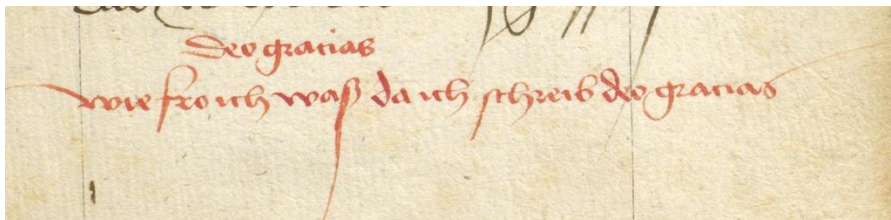 deo gracias
wie fro ich waß da ich schreib deo gracias